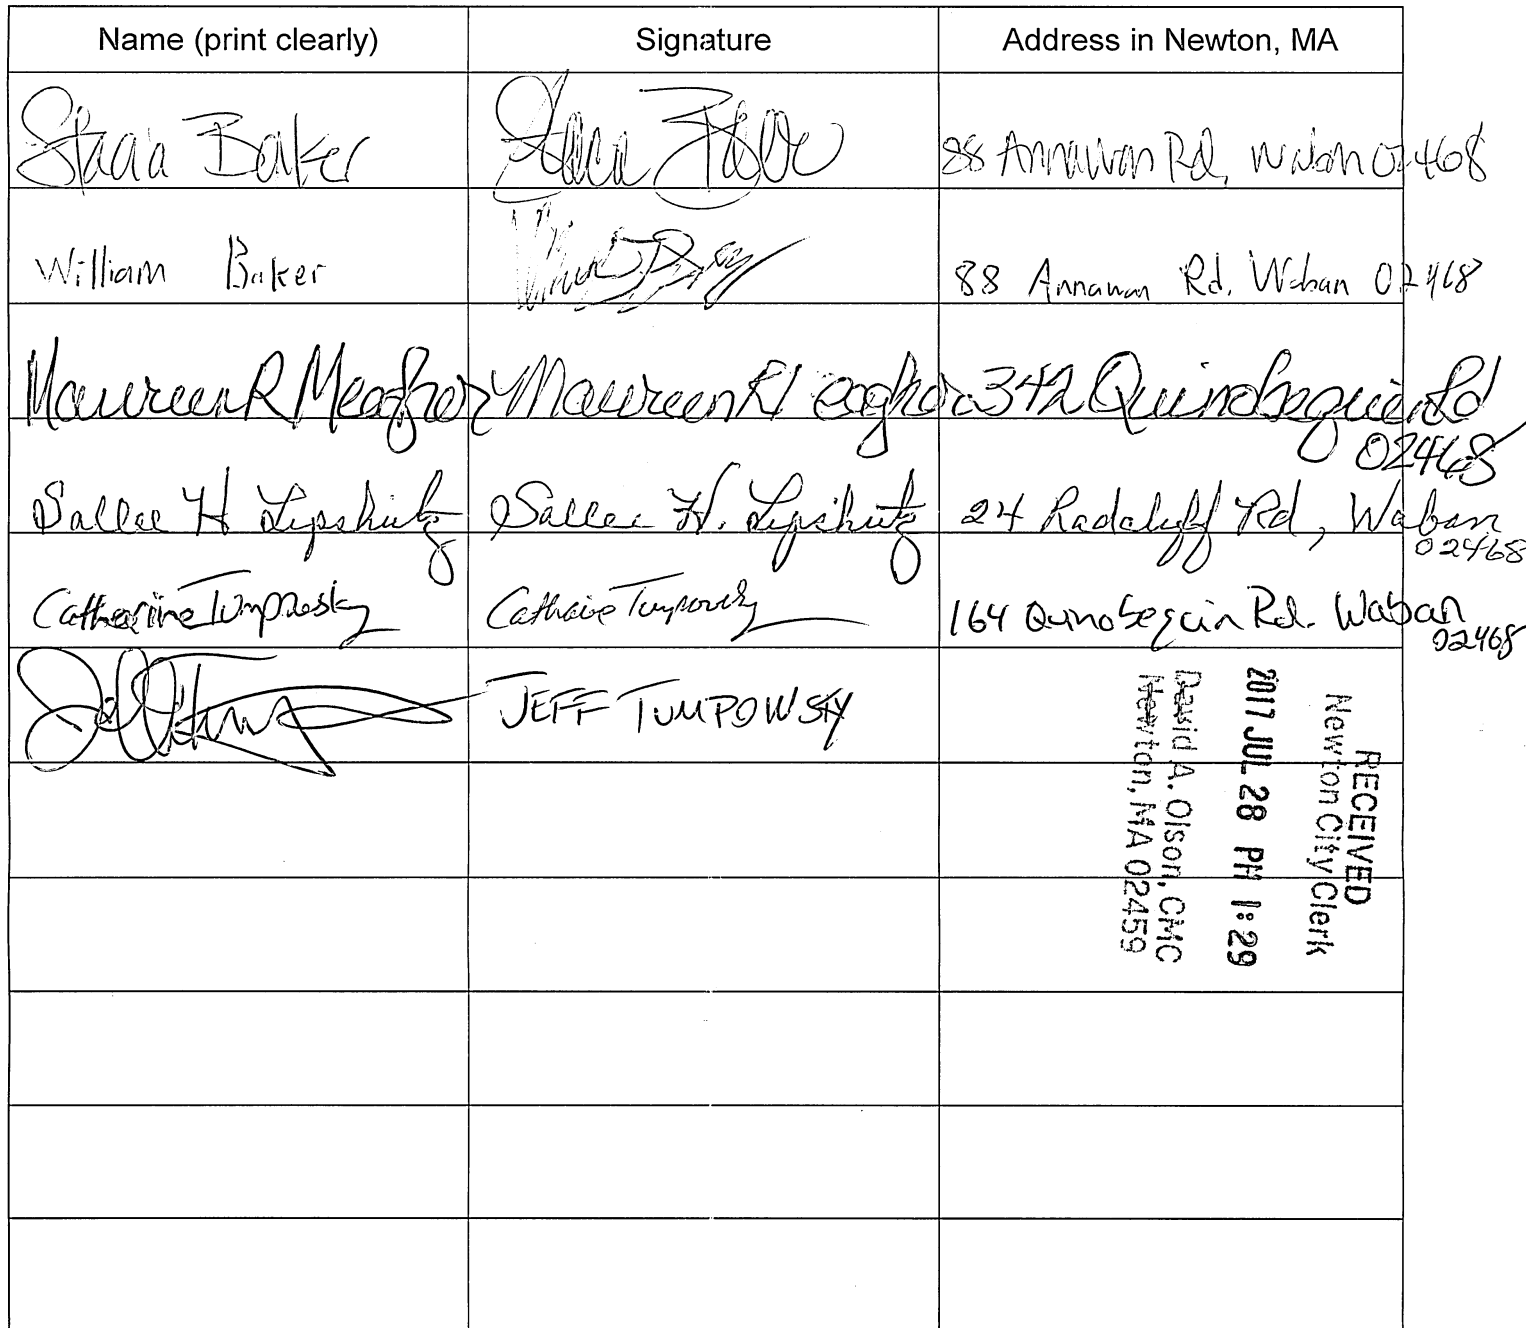 Name (print clearly) Signature Address in Newton, MA
Stacia Baker Stacia Baker 88 Annawan Rd, Waban 02468
William Baker 88 Annawan Rd. Waban 02468
Maureen R Meagher Maureen R Meagher 342 Quinobequin Rd
02468
Sallee H Lipshutz Sallee H. Lipshutz 24 Radcliff Rd, Waban
02468
Catherine Tumpowsky Catherine Tumpowsky 164 Quinobequin Rd. Waban
02468
JEFF TUMPOWSKY
RECEIVED
Newton City Clerk
2017 JUL 28 PM 1:29
David A. Olson, CMC
Newton, MA 02459